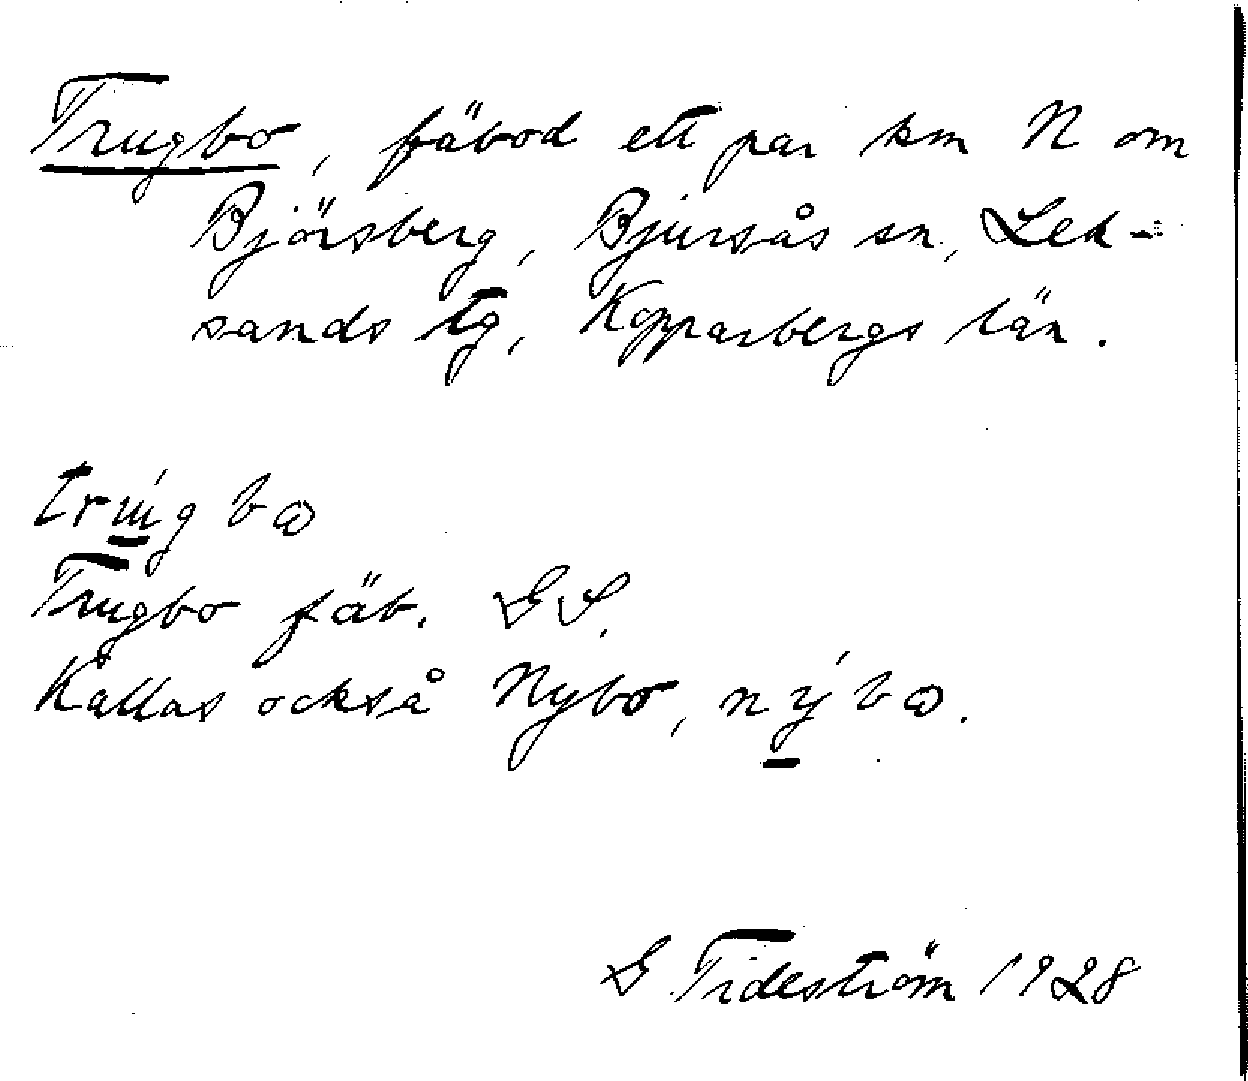 Trugbo, fäbod ett par km N om
Björsberg, Bjursås sn, Lek-
sands tg, Kopparbergs län.
trúgbω
Trugbo fäb. GS.
Kallas också Nybo, nýbω.
G Tideström 1928